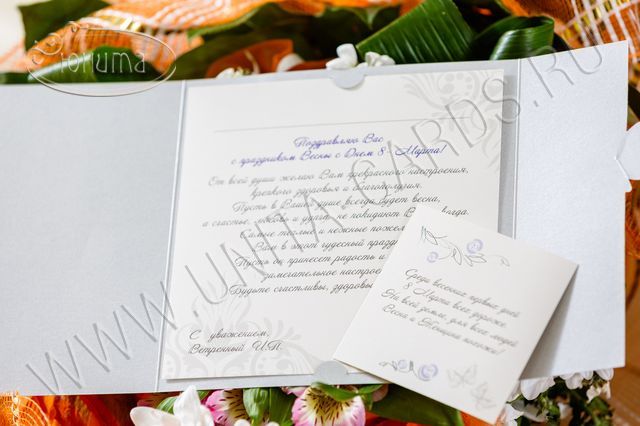 Поздравляю Вас
с праздником Весны с Днем 8 - Марта!
От всей души желаю Вам прекрасного настроения,
крепкого здоровья и благополучия.
Пусть в Вашей душе всегда будет весна,
а счастье, любовь и удача не покидают
Самые теплые и нежные
Вам в этот чудесный
Пусть он принесет радость и
замечательное
Будьте счастливы,
С уважением,
Ветренный И.П.
Среди весенних первых дней
8 Марта всех дороже.
На всей земле, для всех людей
Весна и Женщина похожи!
WWW.UNITA-CARDS.RU